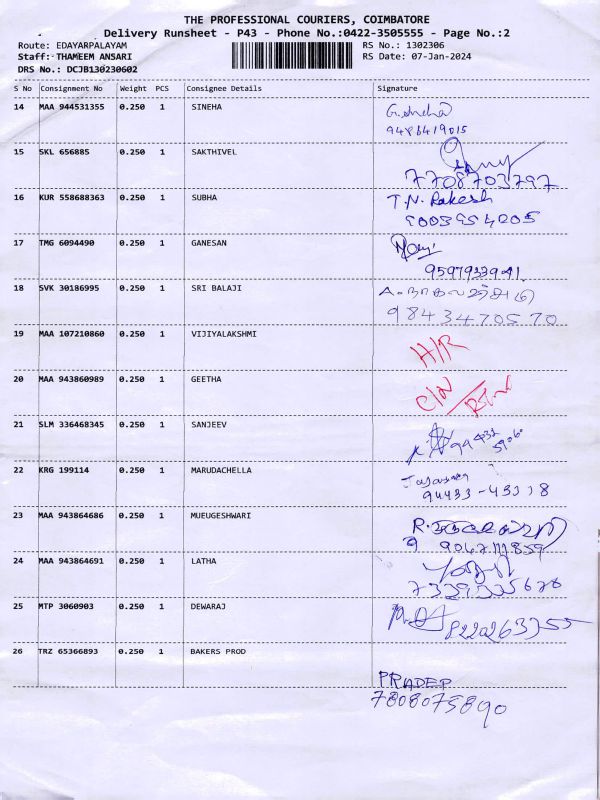 THE PROFESSIONAL COURIERS, COIMBATORE
Delivery Runsheet - P43 - Phone No.:0422-3505555 - Page No.:2
Route: EDAYARPALAYAM RS No.: 1302306
Staff: THAMEEM ANSARI RS Date: 07-Jan-2024
DRS No.: DCJB130230602
S No Consignment No Weight PCS Consignee Details Signature
14 MAA 944531355 0.250 1 SINEHA G.sneha
9486419015
15 SKL 656885 0.250 1 SAKTHIVEL
7708703797
16 KUR 558688363 0.250 1 SUBHA T.N. Rakesh
9003954205
17 TMG 6094490 0.250 1 GANESAN
9597933941
18 SVK 30186995 0.250 1 SRI BALAJI
9843470570
19 MAA 107210860 0.250 1 VIJIYALAKSHMI H/R
20 MAA 943860989 0.250 1 GEETHA C/N
21 SLM 336468345 0.250 1 SANJEEV
22 KRG 199114 0.250 1 MARUDACHELLA
94433-43318
23 MAA 943864686 0.250 1 MUEUGESHWARI
24 MAA 943864691 0.250 1 LATHA
25 MTP 3060903 0.250 1 DEWARAJ
8220263755
26 TRZ 65366893 0.250 1 BAKERS PROD
PRADEP
7808075890